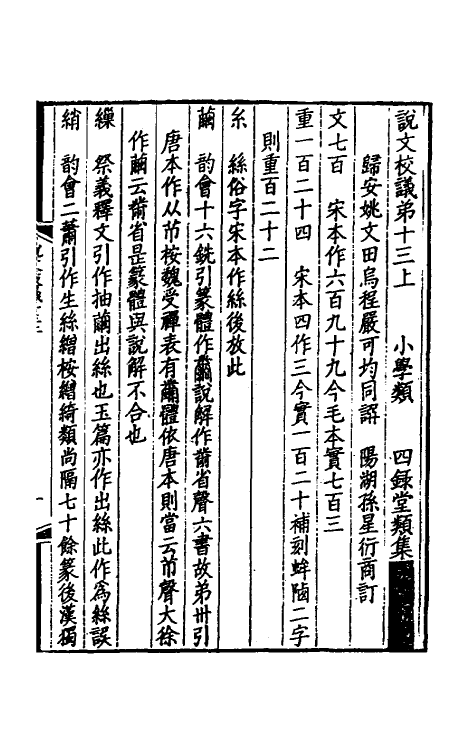 說文校議弟十三上　　小學類　　四録堂類集
歸安姚文田烏程嚴可均同譔　陽湖孫星衍商訂
文七百　宋本作六百九十九今毛本實七百三
重一百二十四　宋本四作三今實一百二十補刻蜶陋二字
則重百二十二
糸　絲俗字宋本作絲後放此
繭　韵會十六銑引篆體作繭說解作黹省聲六書故弟卅引
唐本作从芇桉魏受禪表有繭體依唐本則當云芇聲大徐
作繭云黹省是篆體與說解不合也
繅　祭義釋文引作抽繭出絲也玉篇亦作出絲此作爲絲誤
綃　韵會二蕭引作生絲繒桉繒綺類尚隔七十餘篆後漢獨